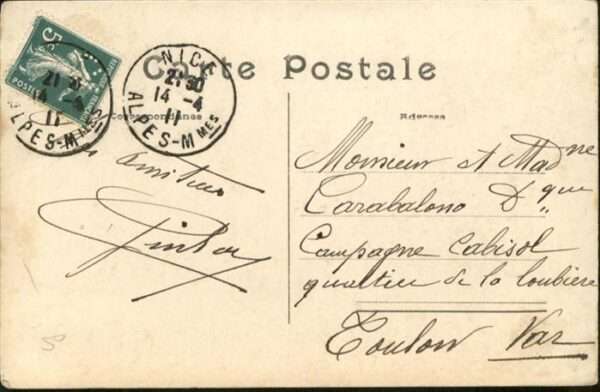 Carte Postale
Correspondance
Adresse
5c
POSTES
21 30
14 -4
11
NICE
21 30
14 -4
11
ALPES-M MES
amitiés
Monsieur et Mad ne
Carabalono D que
Campagne Cabisol
quartier de la loubière
Toulon Var